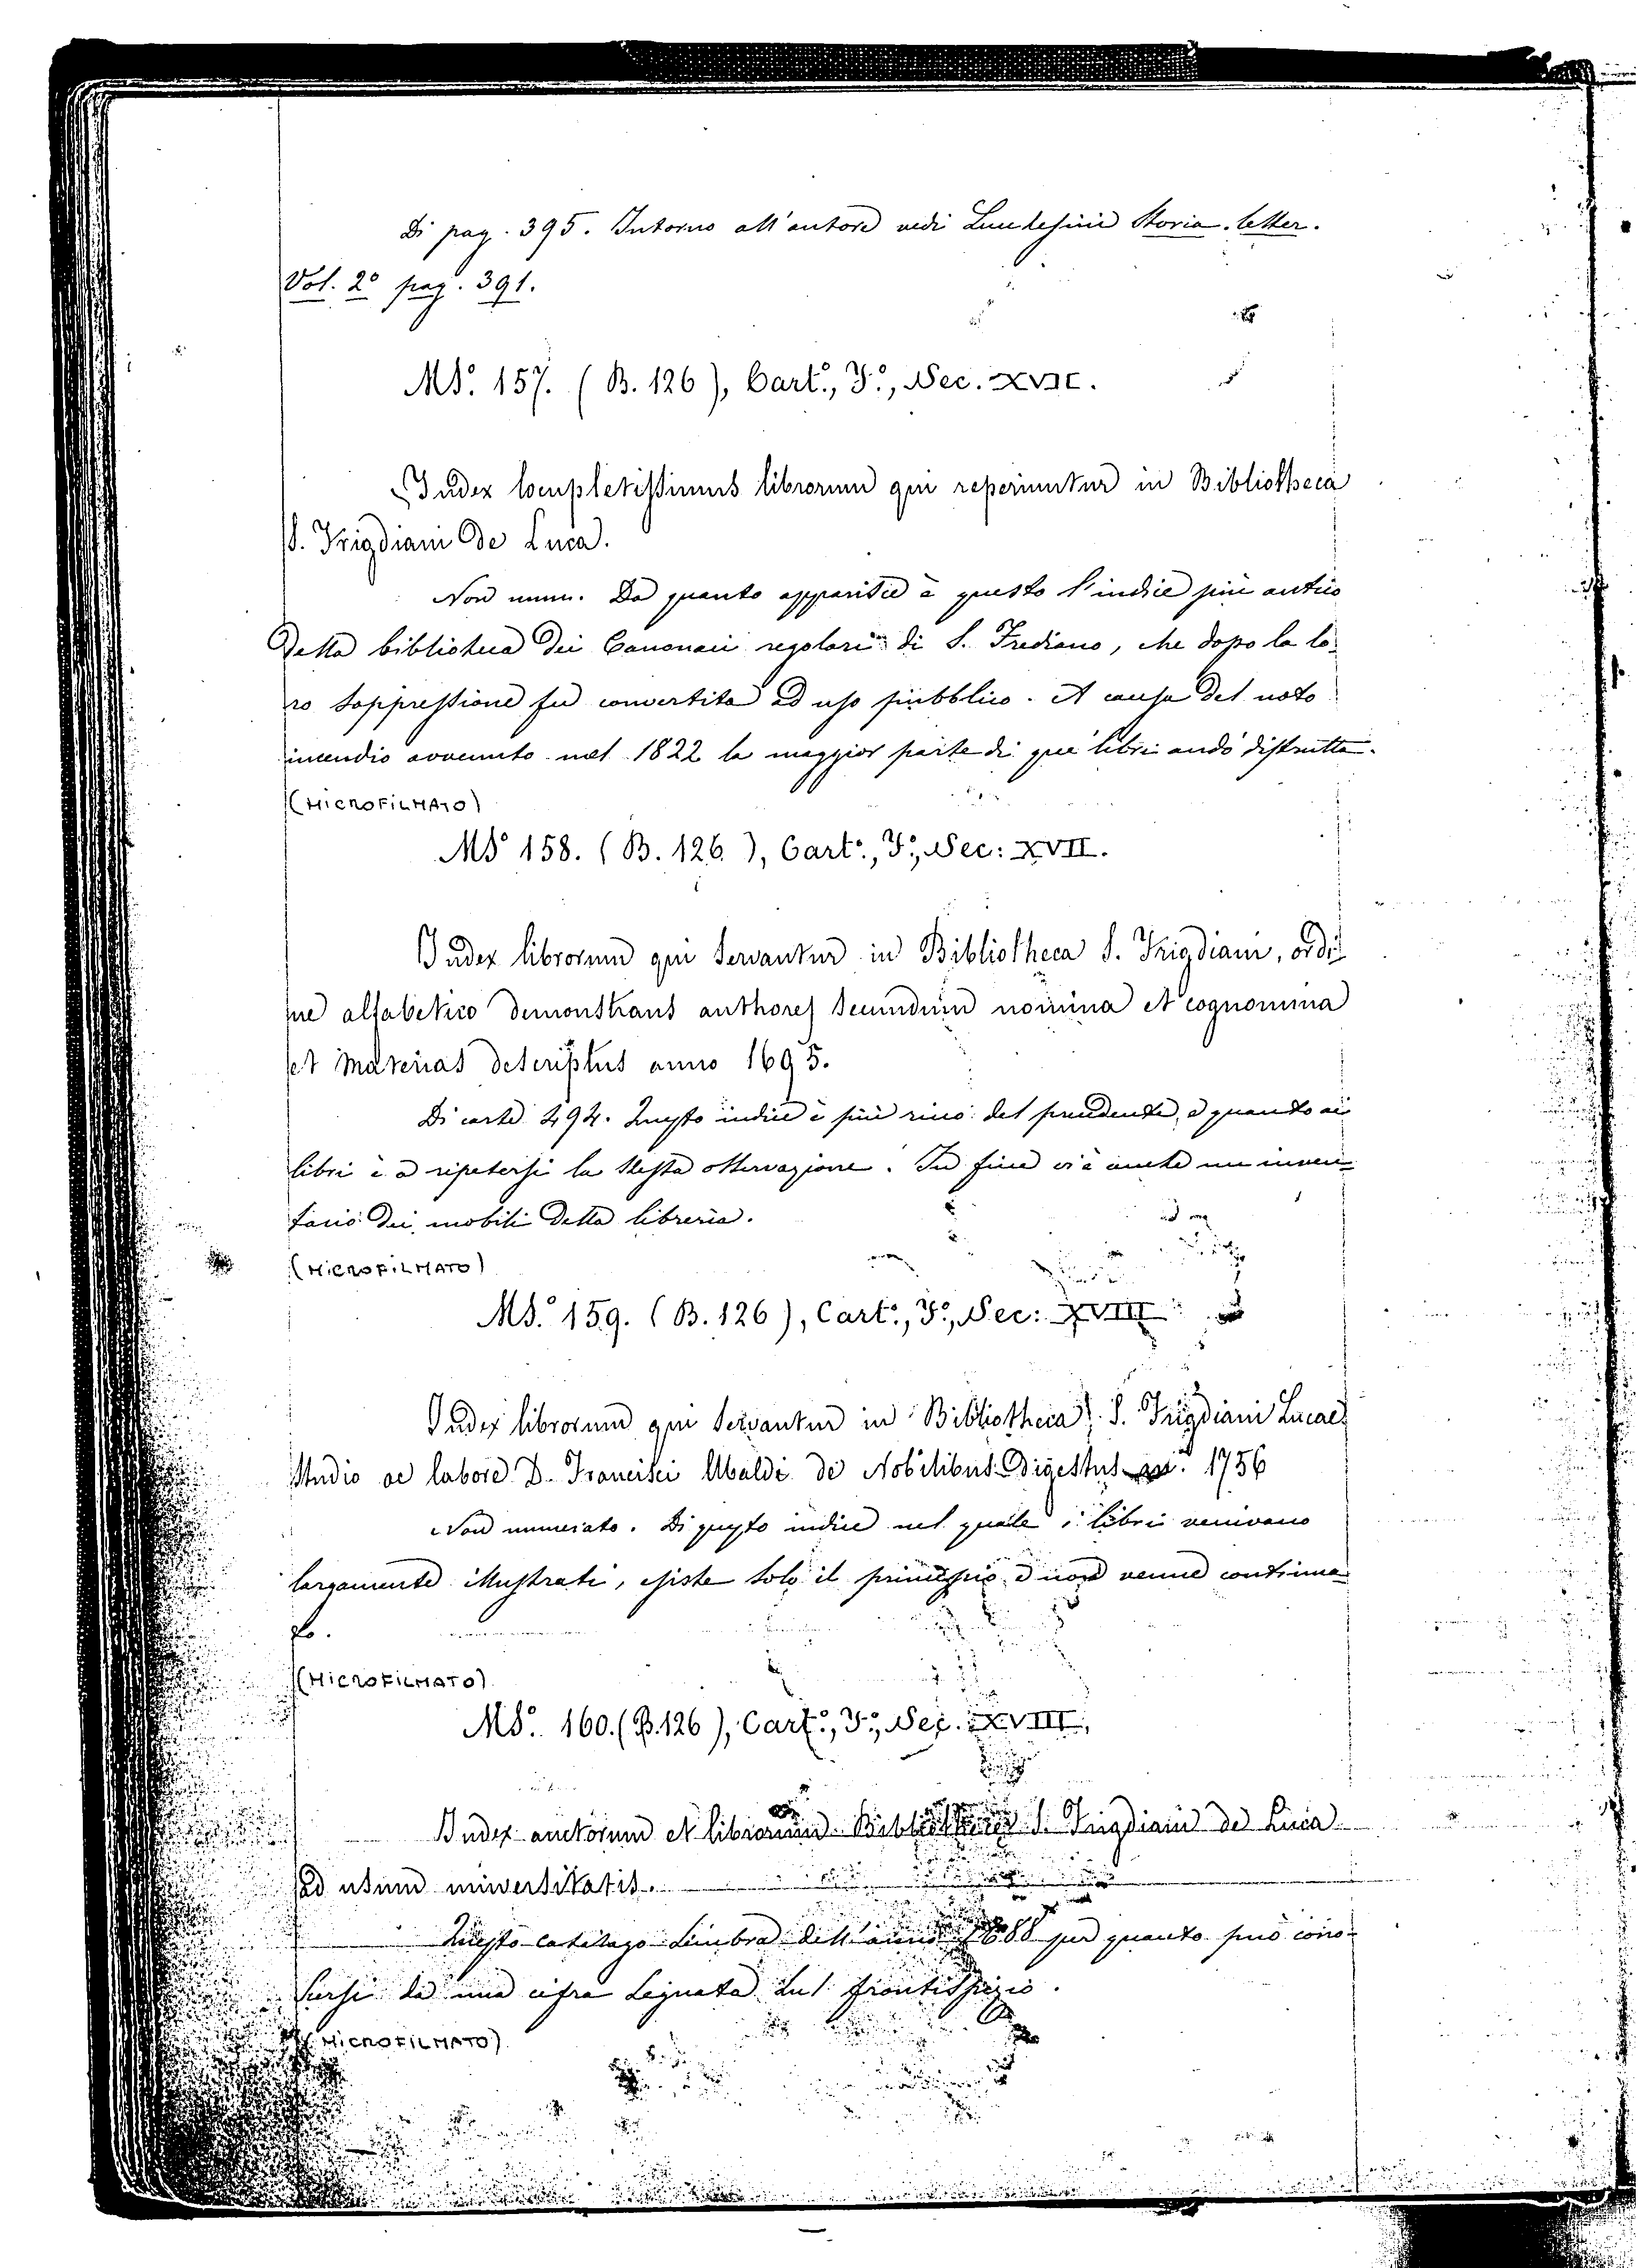 Di pag. 395. Intorno all'autore vedi Lucchesini Storia letter.
Vol. 2° pag. 391.
MS. 157. (B. 126), Cart.°, F.°, Sec. XVII.
Index locupletissimus librorum qui reperiuntur in Bibliotheca
S. Frigdiani de Luca.
Non num. Da quanto apparisce è questo l'indice più antico
della biblioteca dei Canonaci regolari di S. Frediano, che dopo la lo-
ro soppressione fu convertita ad uso pubblico. A causa del noto
incendio avvenuto nel 1822 la maggior parte di que' libri andò distrutta.
(MICROFILMATO)
MS° 158. (B. 126), Cart.°, F.°, Sec: XVII.
Index librorum qui servantur in Bibliotheca S. Frigdiani, ordi-
ne alfabetico demonstrans authores secundum nomina et cognomina
et materias descriptus anno 1695.
Di carte 494. Questo indice è più ricco del precedente, e quanto ai
libri è a ripetersi la stessa osservazione. In fine vi è anche un inven-
tario dei mobili della libreria.
(MICROFILMATO)
MS.° 159. (B. 126), Cart.°, F.°, Sec: XVIII
Index librorum qui servantur in Bibliotheca S. Frigdiani Lucae
studio ac labore D. Francisci Ubaldi de Nobilibus Digestus an. 1756
Non numerato. Di questo indice nel quale i libri venivano
largamente illustrati, esiste solo il principio e non venne continua-
to.
(MICROFILMATO)
MS.° 160. (B. 126), Cart.°, F.°, Sec. XVIII.
Index auctorum et librorum Bibliothecae S. Frigdiani de Luca
ad usum universitatis.
Questo catalago sembra dell'anno 1688 per quanto può cono-
scersi da una cifra segnata sul frontispizio.
(MICROFILMATO)